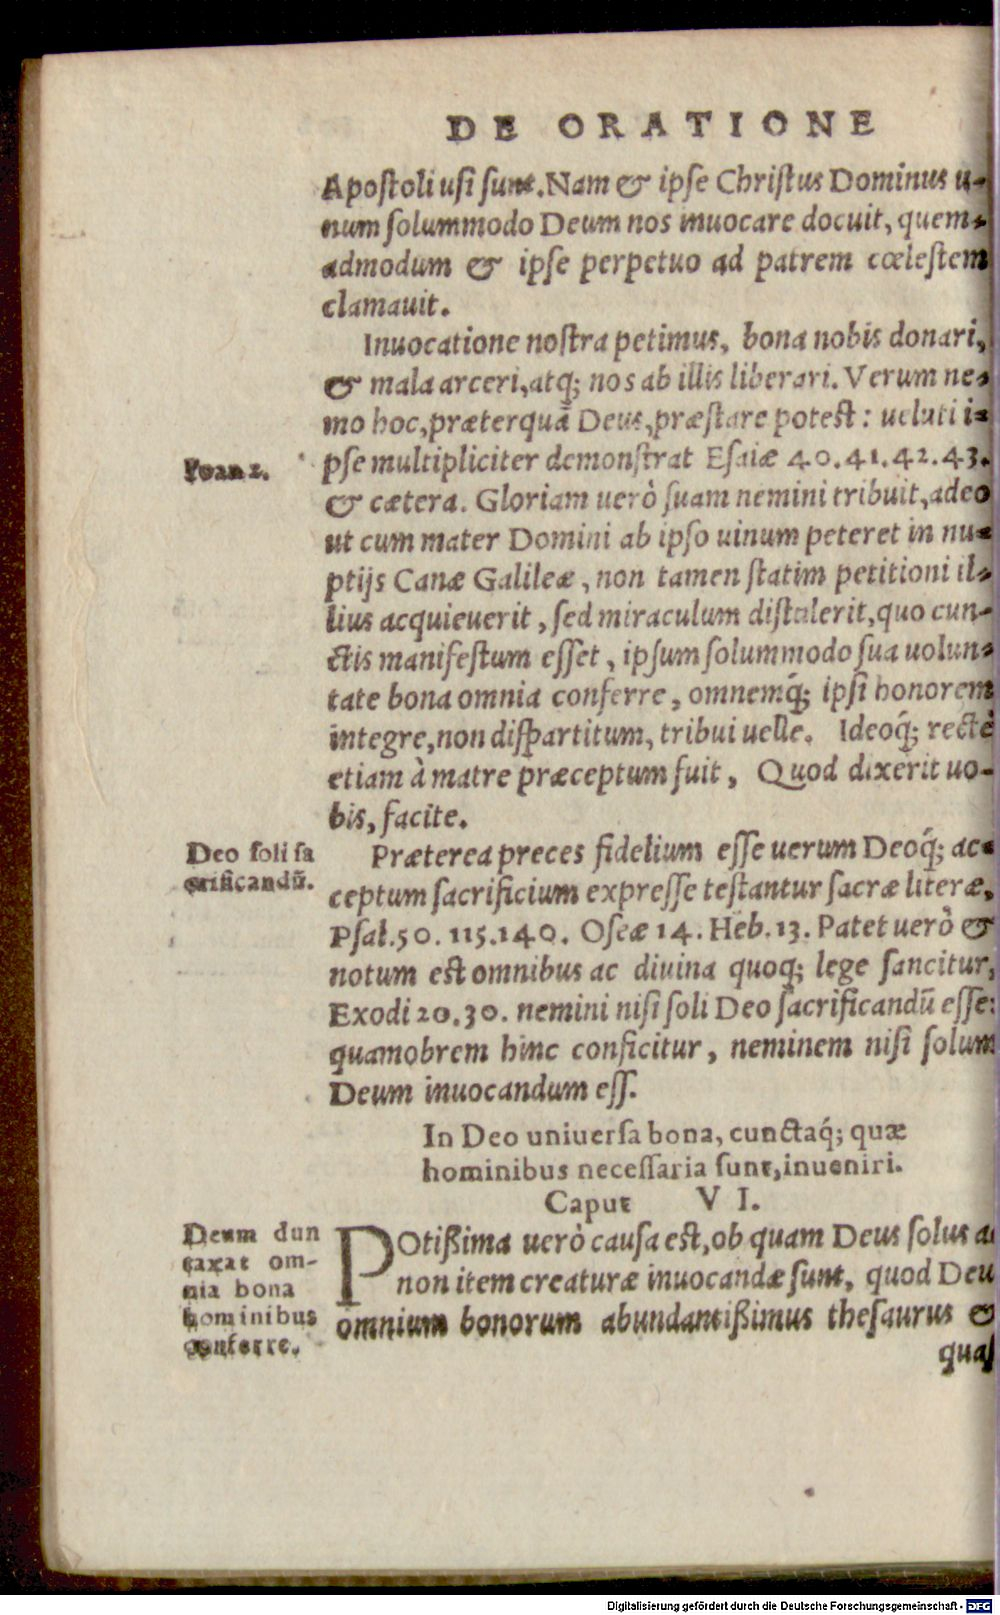 DE ORATIONE
Apostoli usi sunt. Nam & ipse Christus Dominus u-
num solummodo Deum nos inuocare docuit, quem-
admodum & ipse perpetuo ad patrem cœlestem
clamauit.
Inuocatione nostra petimus, bona nobis donari,
& mala arceri, atq; nos ab illis liberari. Verum ne-
mo hoc, præterquã Deus, præstare potest: ueluti i-
Ioan 2.
pse multipliciter demonstrat Esaiæ 40.41.42.43.
& cætera. Gloriam uerò suam nemini tribuit, adeo
ut cum mater Domini ab ipso uinum peteret in nu-
ptijs Canæ Galileæ, non tamen statim petitioni il-
lius acquieuerit, sed miraculum distulerit, quo cun-
ctis manifestum esset, ipsum solummodo sua uolun-
tate bona omnia conferre, omnemq́; ipsi honorem
integre, non dispartitum, tribui uelle. Ideoq́; rectè
etiam à matre præceptum fuit, Quod dixerit uo-
bis, facite.
Deo soli sa
crificandũ.
Præterea preces fidelium esse uerum Deoq́; ac-
ceptum sacrificium expresse testantur sacræ literæ,
Psal.50. 115.140. Oseæ 14. Heb.13. Patet uerò &
notum est omnibus ac diuina quoq; lege sancitur,
Exodi 20.30. nemini nisi soli Deo sacrificandũ esse:
quamobrem hinc conficitur, neminem nisi solum
Deum inuocandum ess.
In Deo uniuersa bona, cunctaq́; quæ
hominibus necessaria sunt, inueniri.
Caput VI.
Deum dun
taxat om-
nia bona
hominibus
conferre.
POtißima uerò causa est, ob quam Deus solus ac
non item creaturæ inuocandæ sunt, quod Deu
omnium bonorum abundantißimus thesaurus &
quas